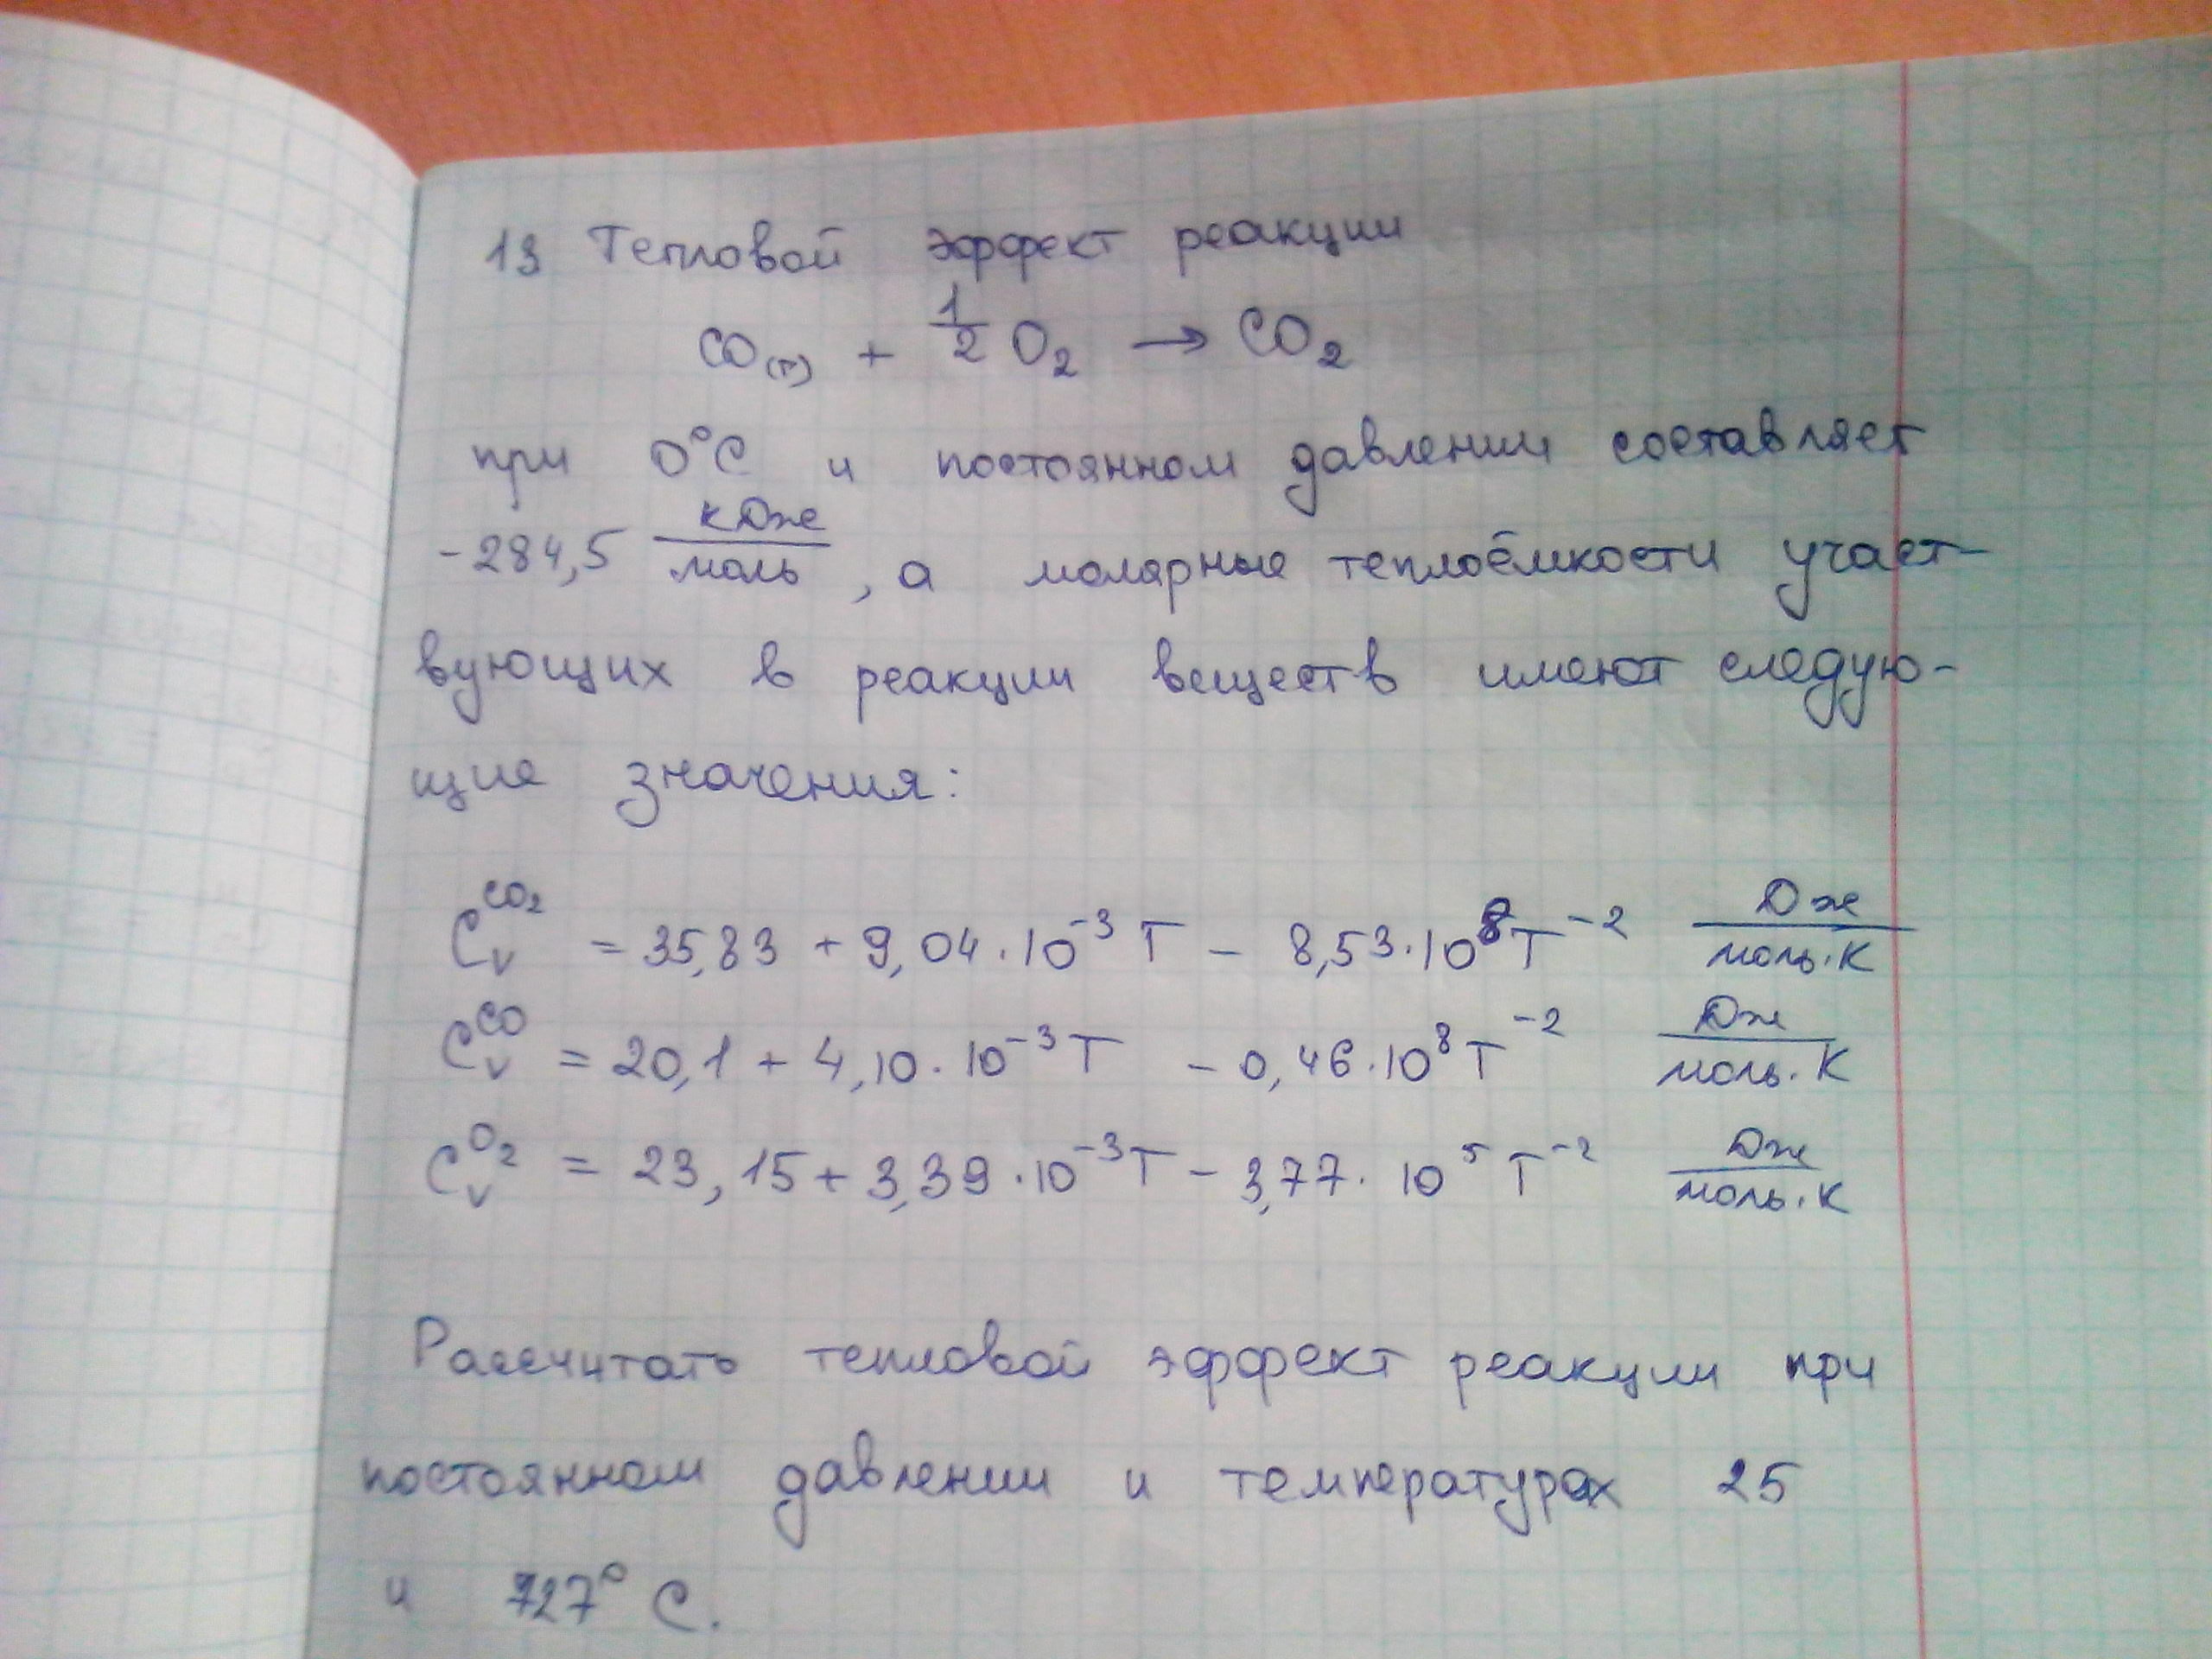 13 Тепловой эффект реакции
CO(г) + 1/2 O₂ → CO₂
при 0°C и постоянном давлении составляет
-284,5 кДж/моль, а молярные теплоёмкости участ-
вующих в реакции веществ имеют следую-
щие значения:
C_V^CO₂ = 35,83 + 9,04·10⁻³ T - 8,53·10⁸ T⁻² Дж/моль·К
C_V^CO = 20,1 + 4,10·10⁻³ T - 0,46·10⁸ T⁻² Дж/моль·К
C_V^O₂ = 23,15 + 3,39·10⁻³ T - 3,77·10⁵ T⁻² Дж/моль·К
Рассчитать тепловой эффект реакции при
постоянном давлении и температурах 25
и 727° C.